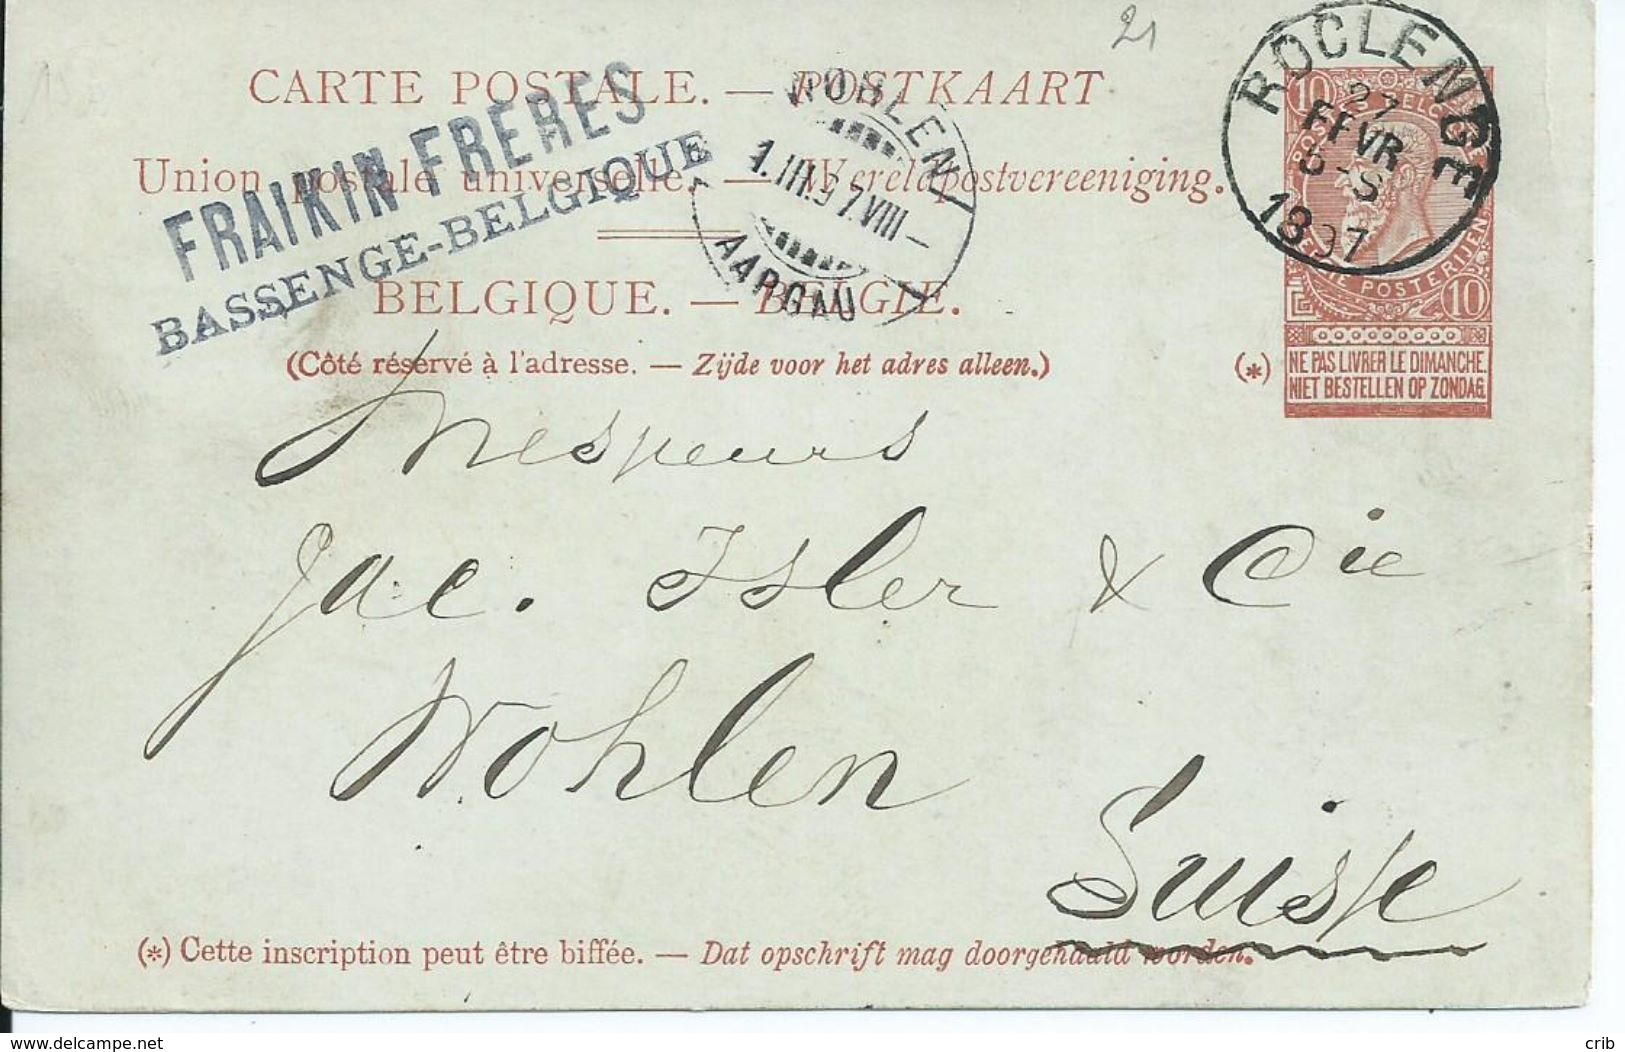 21
CARTE POSTALE. — POSTKAART
Union postale universelle. — Wereldpostvereeniging.
BELGIQUE. — BELGIE.
(Côté réservé à l'adresse. — Zijde voor het adres alleen.)
FRAIKIN FRERES
BASSENGE-BELGIQUE
WOHLEN
1.III.97.VIII–
AARGAU
ROCLENGE
27
FEVR
6-S
1897
10
10
(*)
NE PAS LIVRER LE DIMANCHE.
NIET BESTELLEN OP ZONDAG.
Messieurs
Jac. Isler & Cie
Wohlen
Suisse
(*) Cette inscription peut être biffée. — Dat opschrift mag doorgehaald worden.
www.delcampe.net
crib